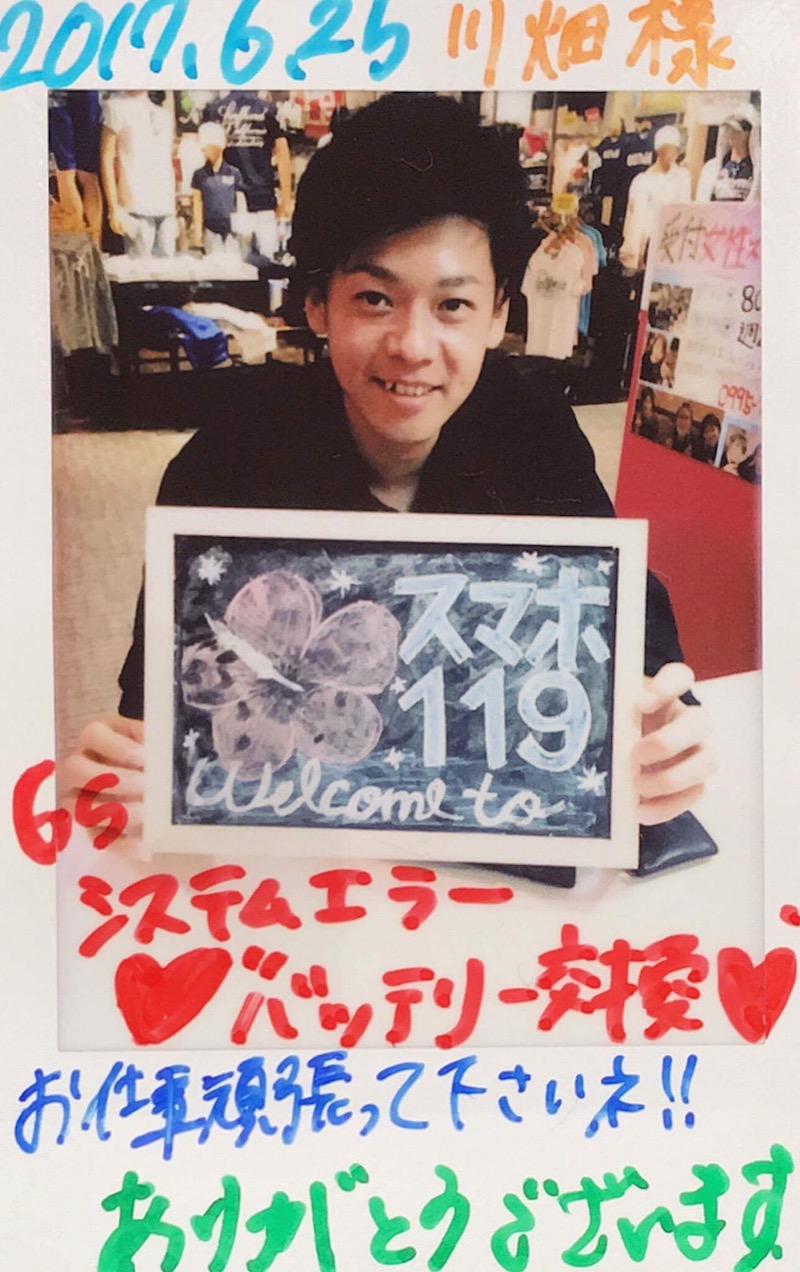 2017.6.25 川畑様
受付女性ス
80
週
0995-
スマホ
119
Welcome to
6s
システムエラー
バッテリー交換
お仕事頑張って下さいネ!!
ありがとうございます